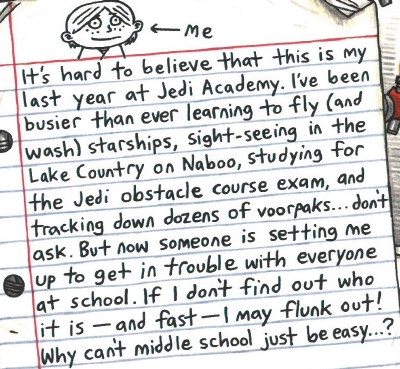 ← Me
It's hard to believe that this is my
last year at Jedi Academy. I've been
busier than ever learning to fly (and
wash) starships, sight-seeing in the
Lake Country on Naboo, studying for
the Jedi obstacle course exam, and
tracking down dozens of voorpaks...don't
ask. But now someone is setting me
up to get in trouble with everyone
at school. If I don't find out who
it is — and fast — I may flunk out!
Why can't middle school just be easy...?